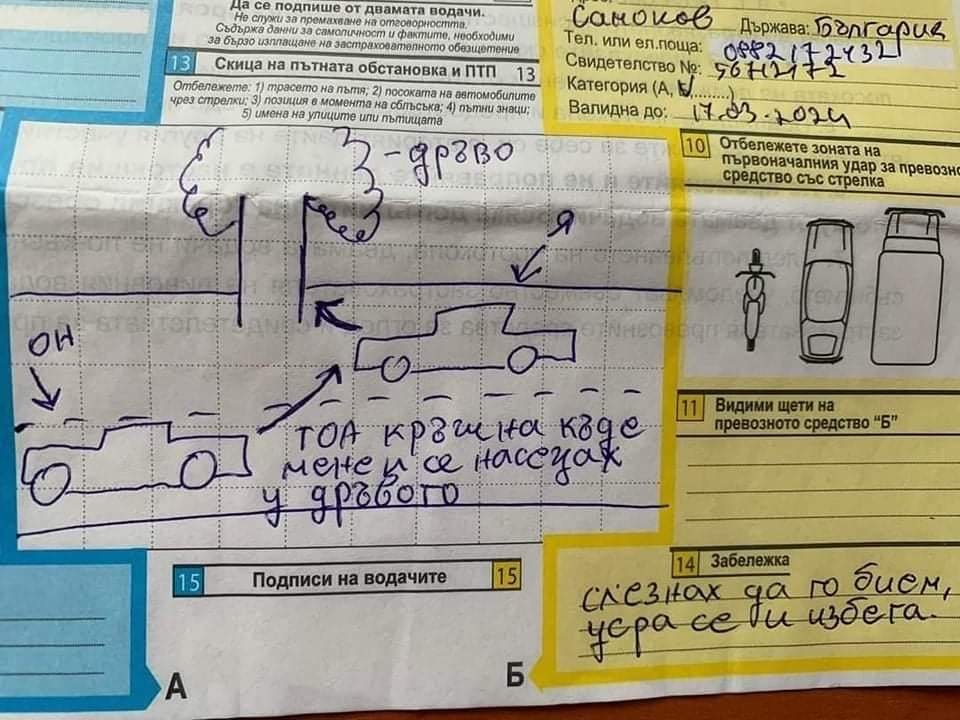 Да се подпише от двамата водачи.
Не служи за премахване на отговорността.
Съдържа данни за самоличност и фактите, необходими
за бързо изплащане на застрахователното обезщетение
13 Скица на пътната обстановка и ПТП 13
Отбележете: 1) трасето на пътя; 2) посоката на автомобилите
чрез стрелки; 3) позиция в момента на сблъсъка; 4) пътни знаци;
5) имена на улиците или пътищата
- дръво
Я
ОН
ТОА кръшна къде
мене и се насецах
у дръвото
15 Подписи на водачите 15
А
Б
Саноков Държава: България
Тел. или ел.поща: 0882172432
Свидетелство №: 56712172
Категория (А, В/.......)
Валидна до: 17.03.2024
10 Отбележете зоната на
първоначалния удар за превозно
средство със стрелка
11 Видими щети на
превозното средство “Б”
14 Забележка
слезнах да го бием,
усра се и избега.